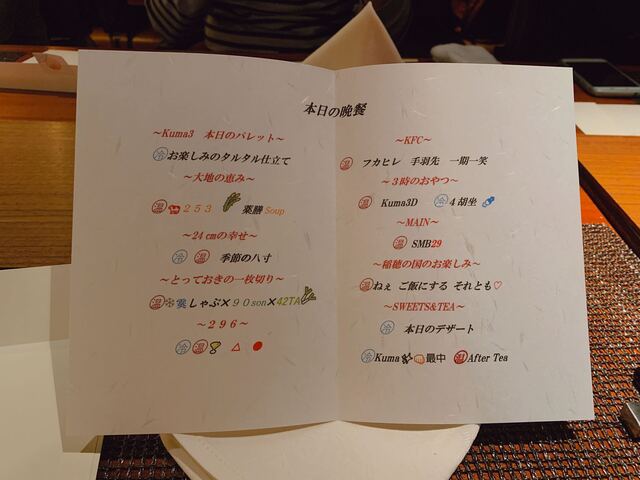 本日の晩餐
～Kuma3 本日のパレット～
冷お楽しみのタルタル仕立て
～大地の恵み～
温 253 薬膳 Soup
～24 cmの幸せ～
冷 温 季節の八寸
～とっておきの一枚切り～
温 しゃぶ×90son×42TA
～296～
冷 温 △ ●
～KFC～
温 フカヒレ 手羽先 一期一笑
～3時のおやつ～
温 Kuma3D 冷 4胡坐
～MAIN～
温 SMB29
～稲穂の国のお楽しみ～
温ねぇ ご飯にする それとも♡
～SWEETS&TEA～
冷 本日のデザート
冷Kuma 最中 温After Tea